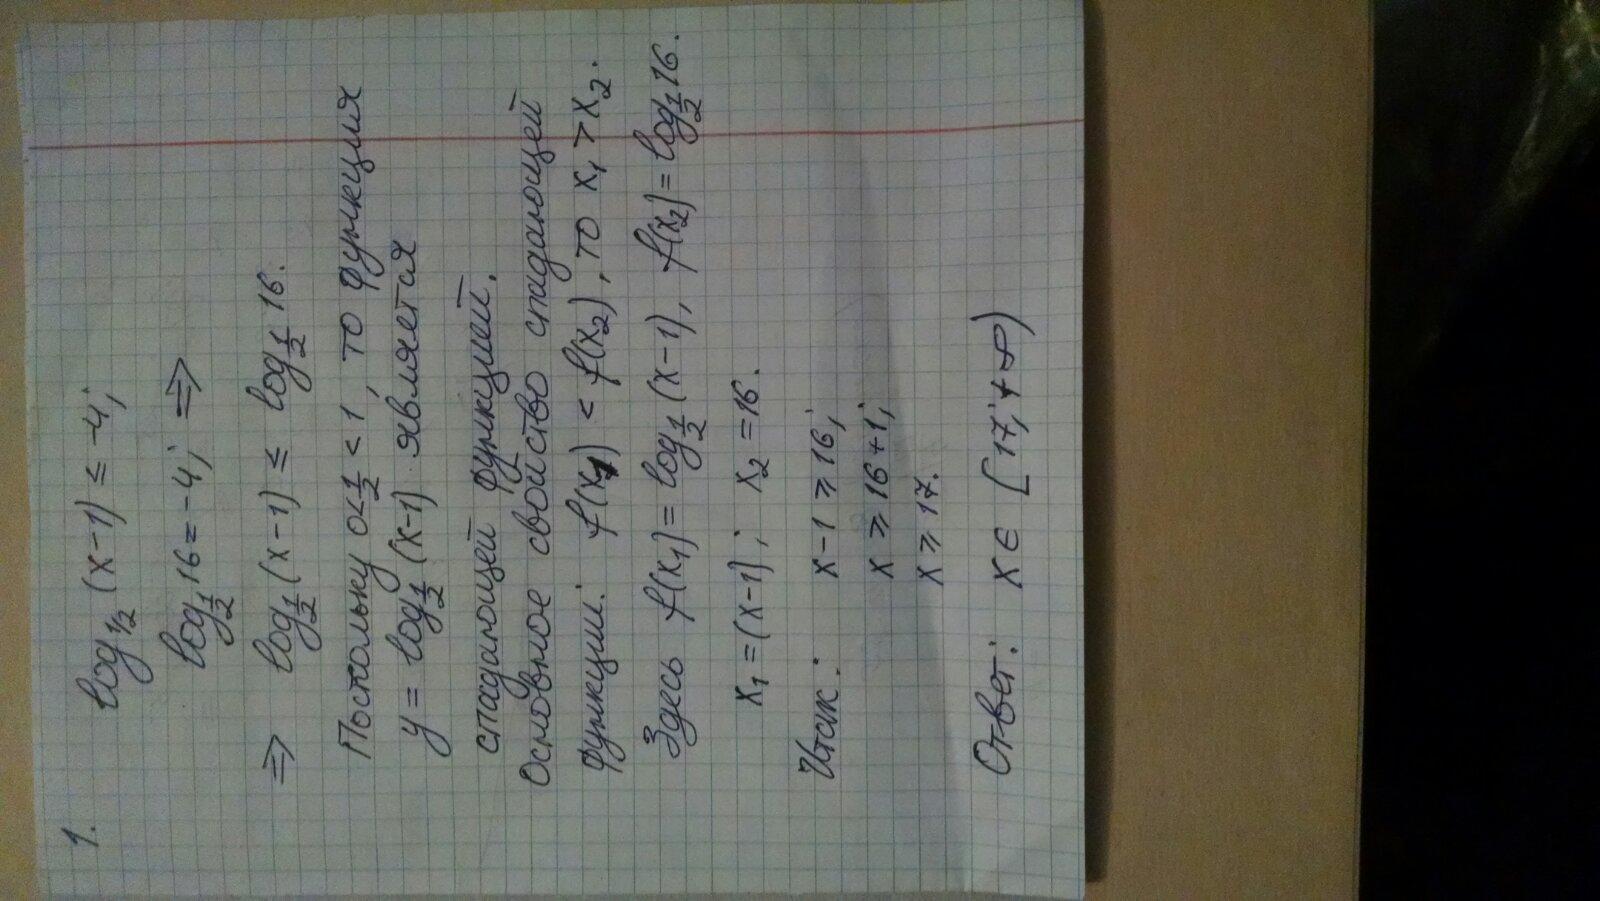 1.
log 1/2 (x-1) ≤ -4;
log 1/2 16 = -4; ⇒
⇒ log 1/2 (x-1) ≤ log 1/2 16.
Поскольку 0<1/2<1, то функция
y = log 1/2 (x-1) является
спадающей функцией.
Основное свойство спадающей
функции: f(x1) < f(x2), то x1 > x2.
Здесь f(x1) = log 1/2 (x-1), f(x2) = log 1/2 16.
x1 = (x-1); x2 = 16.
Итак: x-1 ≥ 16;
x ≥ 16+1;
x ≥ 17.
Ответ: x ∈ [17;+∞)